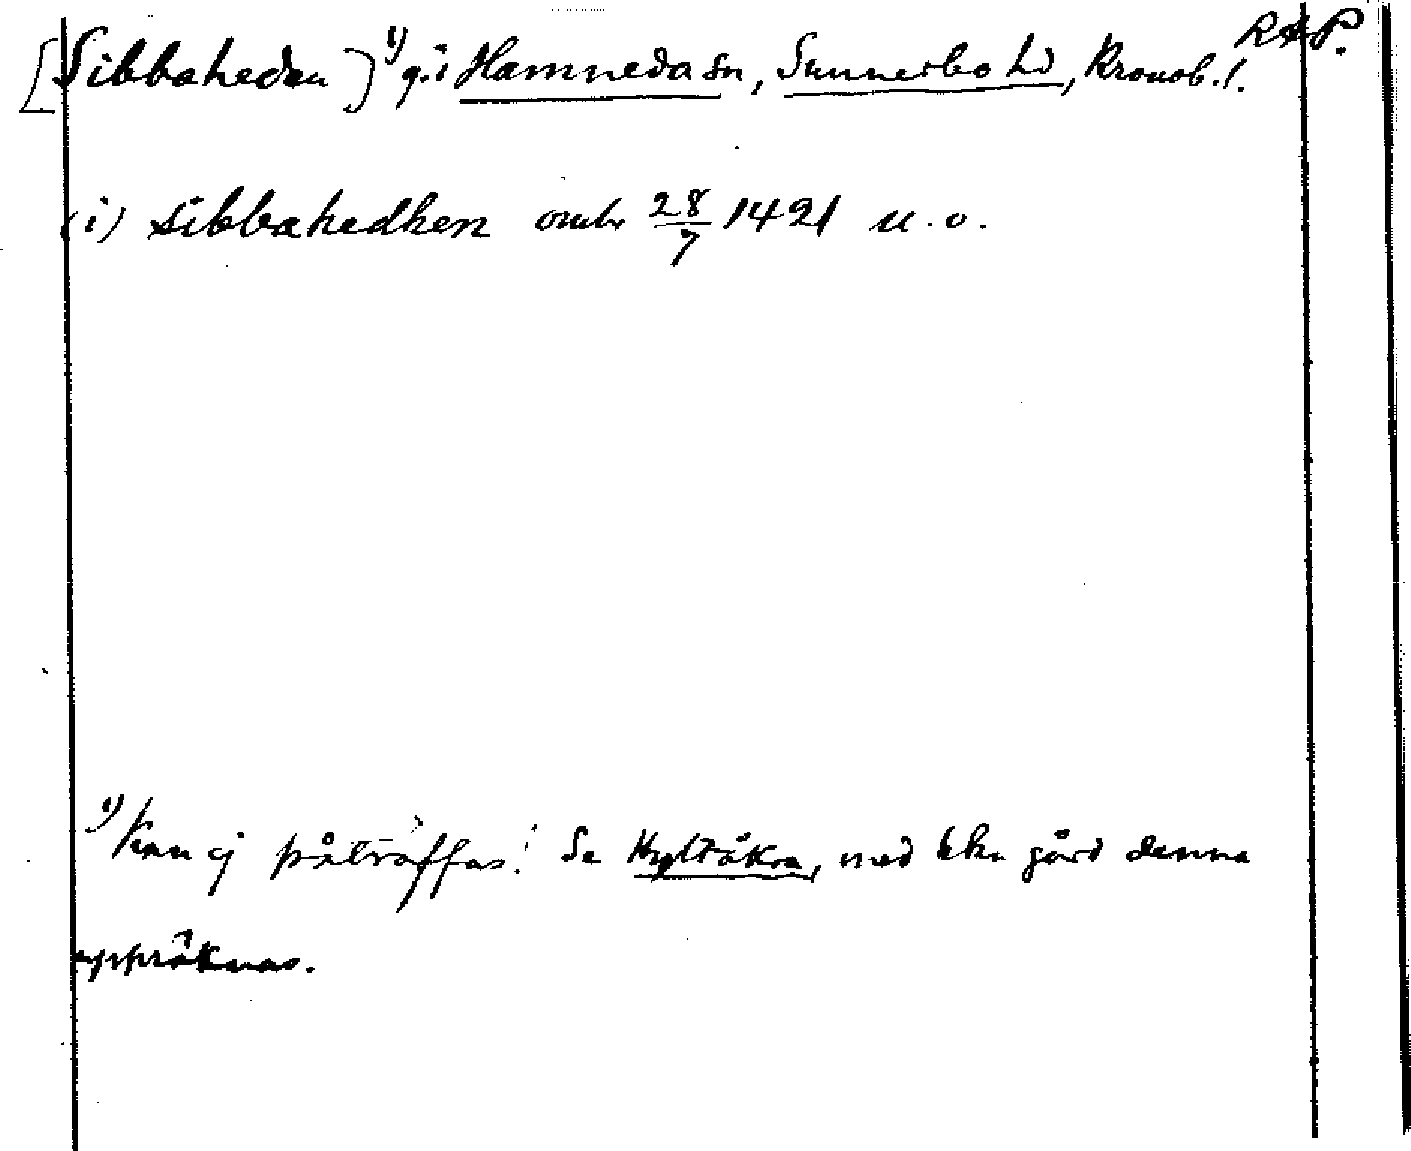 RAP.
[Sibbaheden]¹⁾ g. i Hamneda sn, Sunnerbo hd, Kronob. l.
(i) Sibbahedhen omtr 28/7 1421 u. o.
¹⁾ Kan ej påträffas! Se Hyltåkra, med hken gård denna
uppräknas.